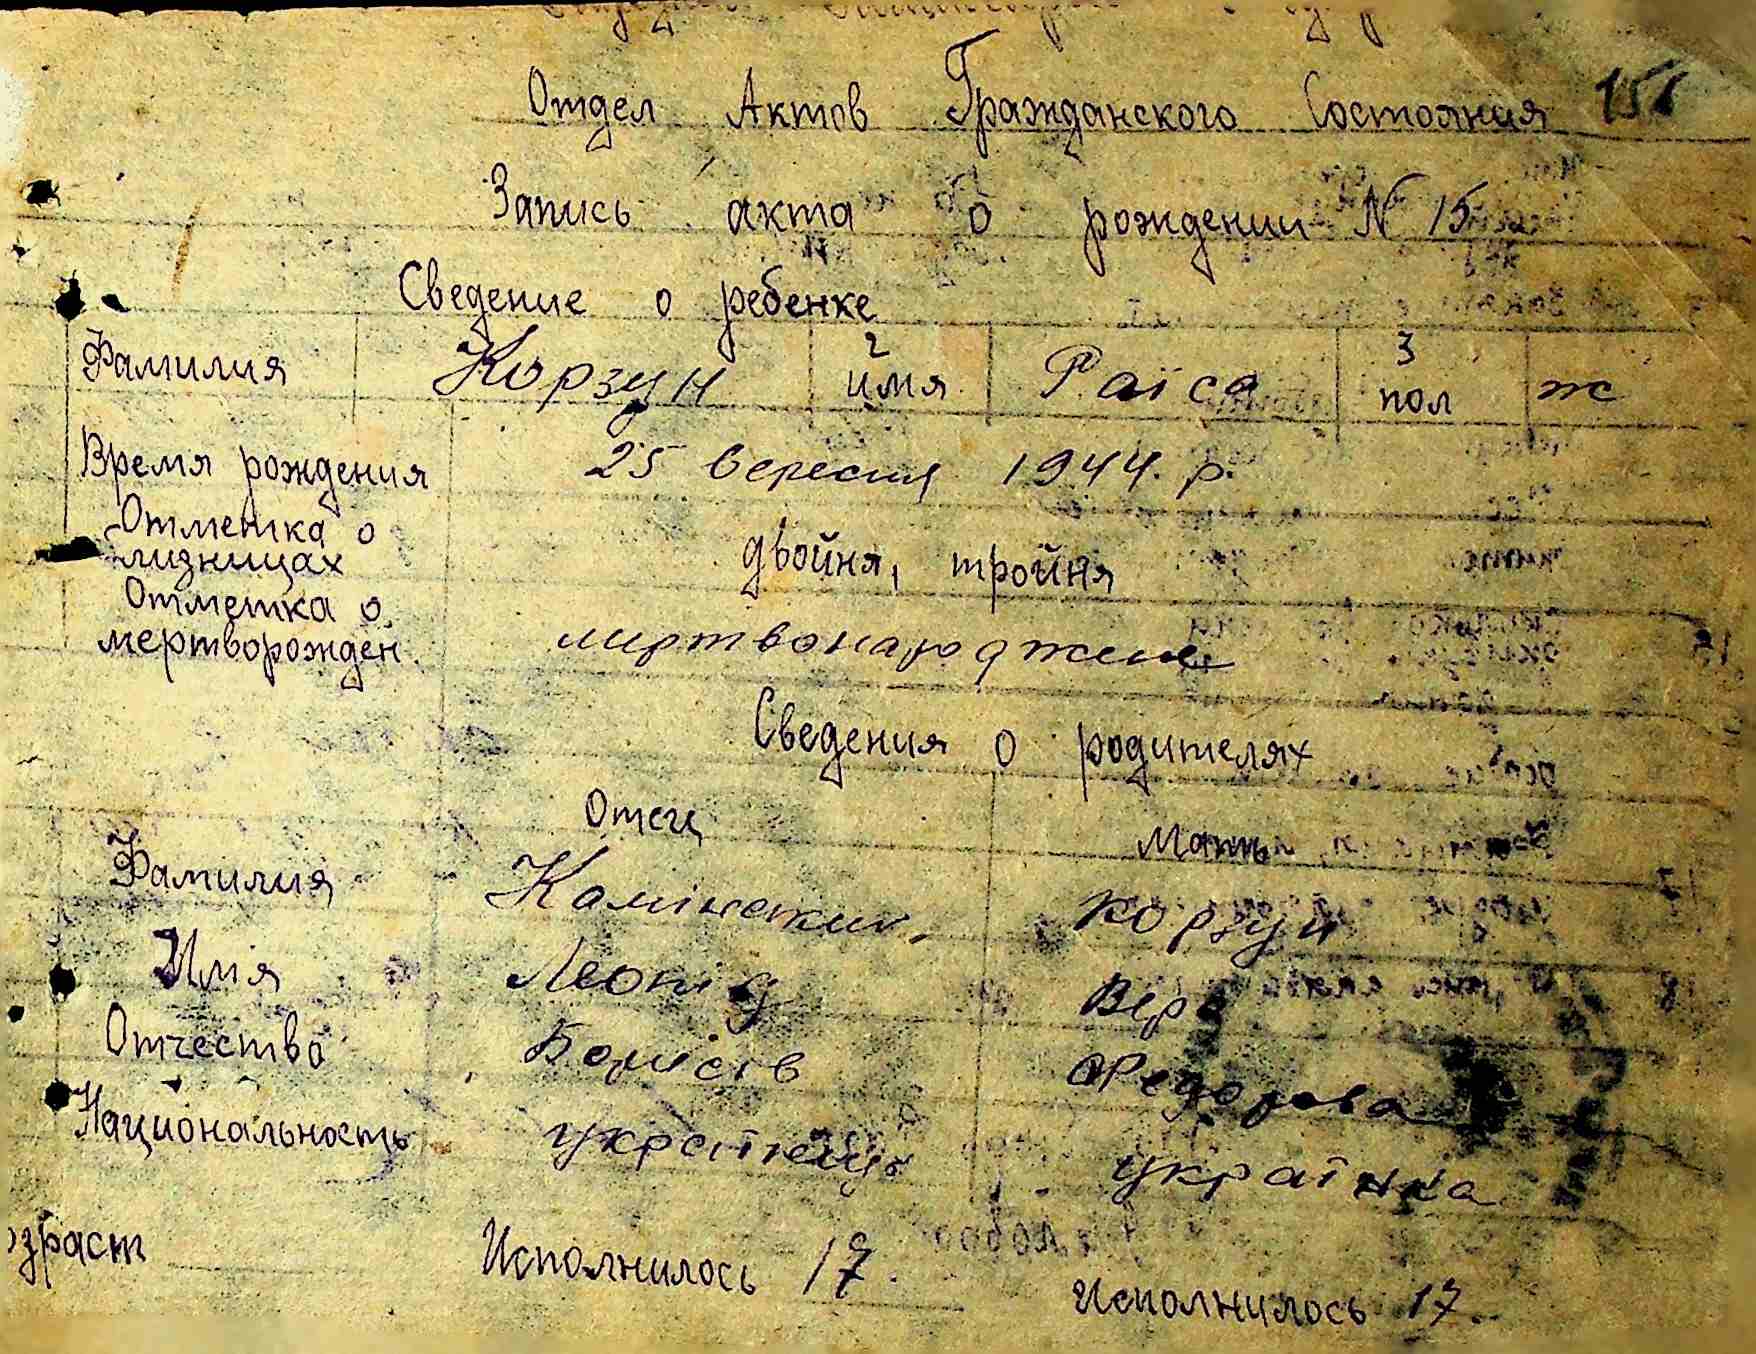 Отдел Актов Гражданского Состояния 151
Запись акта о рождении № 15
Сведение о ребенке
Фамилия Корзун 2 имя Раїса 3 пол ж
Время рождения 25 вересня 1944. р.
Отметка о
лизницах двойня, тройня
Отметка о
мертворожден. мертвонароджене
Сведения о родителях
Отец Мать
Фамилия Камінский. Корзун
Имя Леонід Віра
Отчество Борисів Федорова
Национальность українець українка
озраст Исполнилось 17. Исполнилось 17.